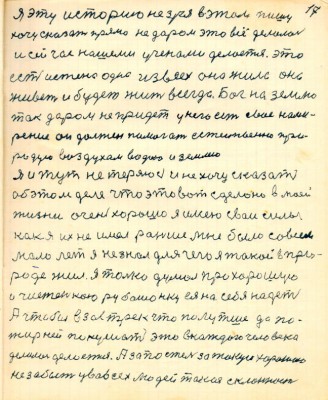 17
Я эту историю не зря в этом пишу
хочу сказать прямо не даром это всё делалось
и сейчас нашеми учеными делается. Это
есть истено одно из всех она жила она
живет и будет жит всегда. Бог на землю
так даром не придет у него есть свае наме-
рение он должен помогат естественно при-
родую воздухам водою и землею
Я и тут не теряюсь и не хочу сказат
об этом деля что это вот сделоно в моей
жизни очен хорошо я имею сваи силы
как я их не имел раньше мне было совсем
мало лет я не знал для чего я такой в при-
роде жил. Я толко думал про хорошую
о чистенкою рубашонку ея на себя надет
А чтобы взавтрек что полутше да по-
жирней покушат это в каждого человека
делалос делается. А за то тем за такую хорошою
не забыт у вав всех людей такая склонност